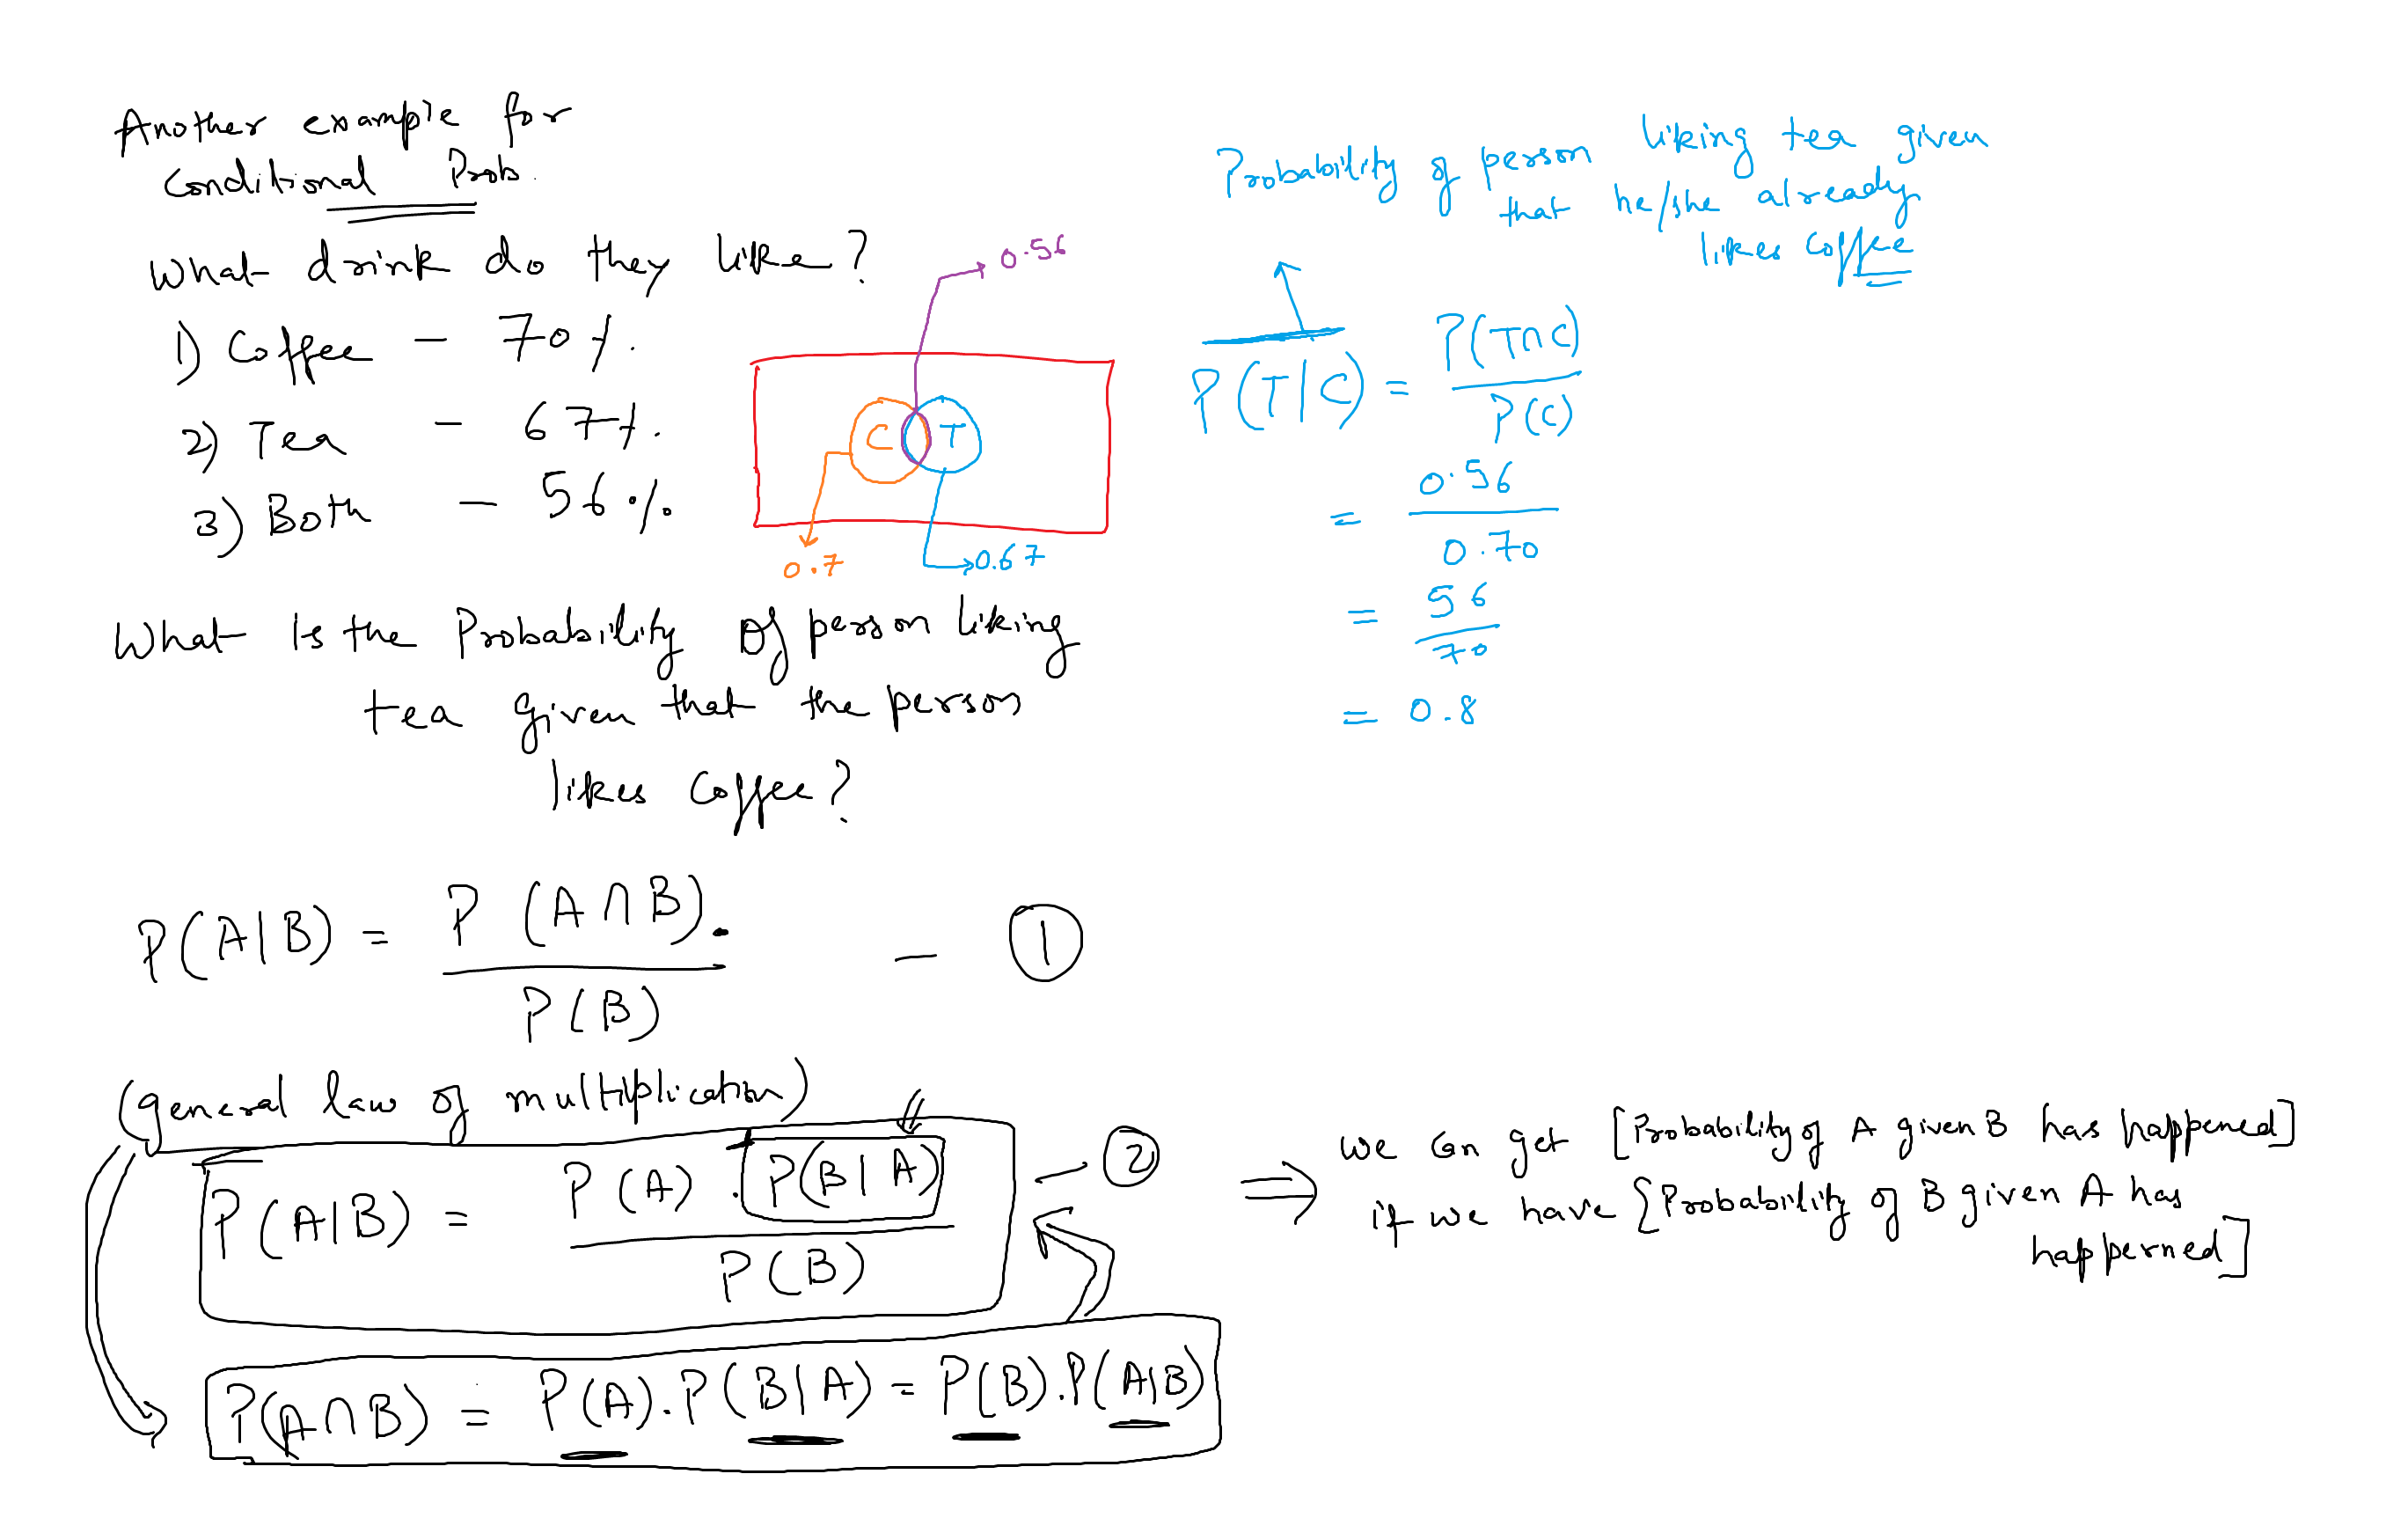 Another example for
Conditional Prob.
What drink do they like?
1) Coffee - 70%.
2) Tea - 67%.
3) Both - 56%
0.56
C T
0.7
0.67
What is the Probability of person liking
tea given that the person
likes coffee?
Probability of person liking tea given
that he/she already
likes coffee
P(T|C) = P(T∩C)
P(C)
= 0.56
0.70
= 56
70
= 0.8
P(A|B) = P(A∩B).
P(B)
- 1
(general law of multiplication)
P(A|B) = P(A) . P(B|A)
P(B)
- 2
⇒ we can get [Probability of A given B has happened]
if we have [Probability of B given A has
happerned]
P(A∩B) = P(A).P(B|A) = P(B).P(A|B)